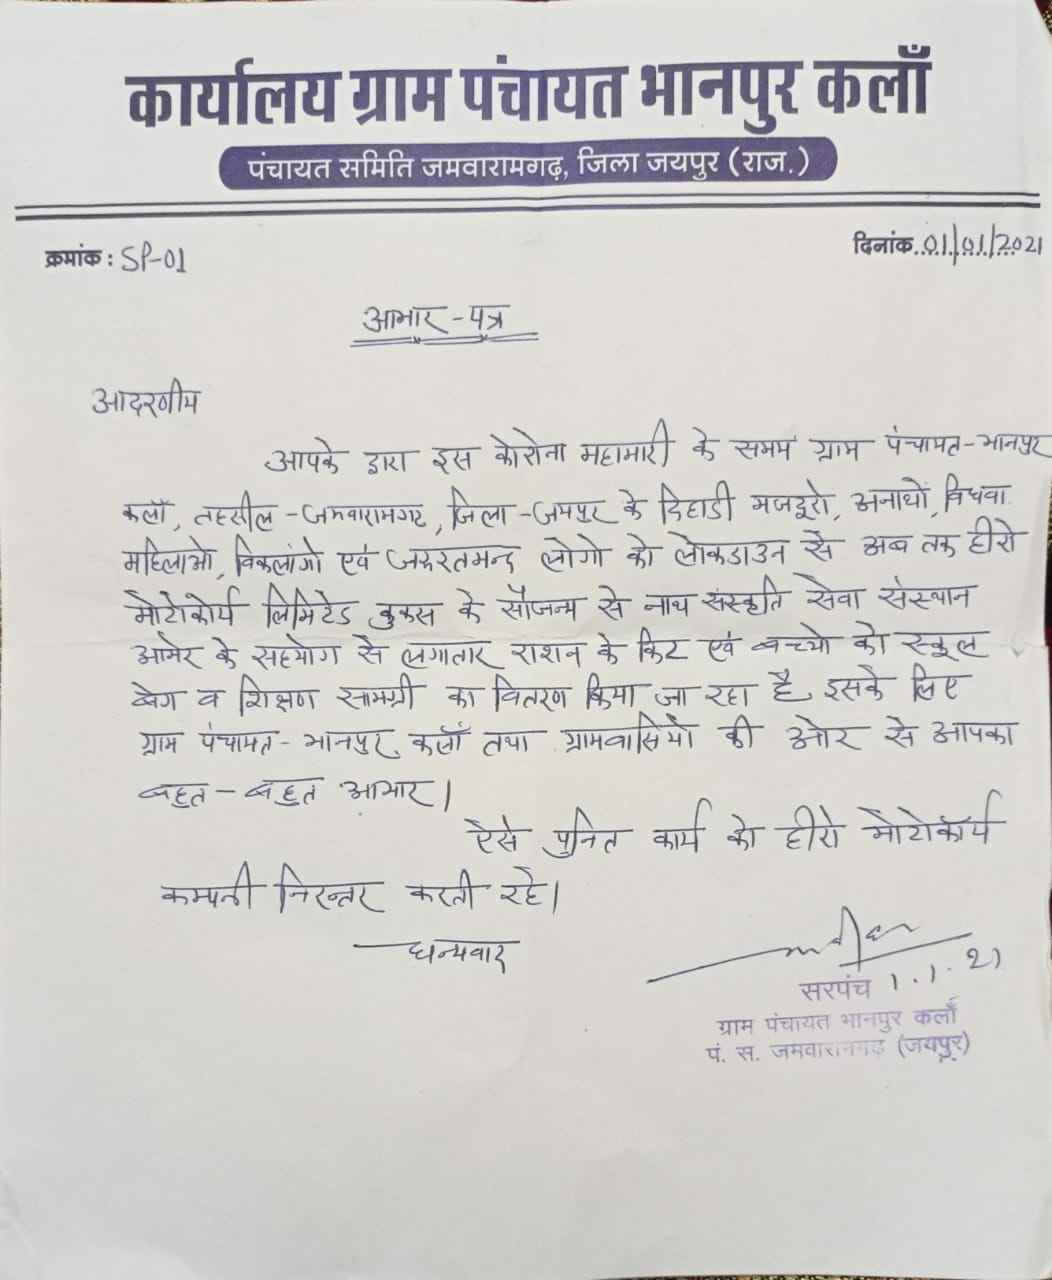 कार्यालय ग्राम पंचायत भानपुर कलाँ
पंचायत समिति जमवारामगढ़, जिला जयपुर (राज.)
क्रमांक : SP-01
दिनांक 01/01/2021
आभार - पत्र
आदरणीय
आपके द्वारा इस कोरोना महामारी के समय ग्राम पंचायत-भानपुर
कलाँ, तहसील - जमवारामगढ, जिला - जयपुर के दिहाडी मजदूरो, अनाथों, विधवा
महिलाओ, विकलांगो एवं जरुरतमन्द लोगो को लोकडाउन से अब तक हीरो
मोटोकोर्प लिमिटेड कुकस के सौजन्य से नाथ संस्कृति सेवा संस्थान
आमेर के सहयोग से लगातार राशन के किट एवं बच्चो को स्कूल
बेग व शिक्षण सामग्री का वितरण किया जा रहा है, इसके लिए
ग्राम पंचायत - भानपुर कलाँ तथा ग्रामवासियो की ओर से आपका
बहुत - बहुत आभार।
ऐसे पुनित कार्य को हीरो मोटोकॉर्प
कम्पनी निरन्तर करती रहे।
धन्यवाद
सरपंच 1.1.21
ग्राम पंचायत भानपुर कलाँ
पं. स. जमवारामगढ़ (जयपुर)